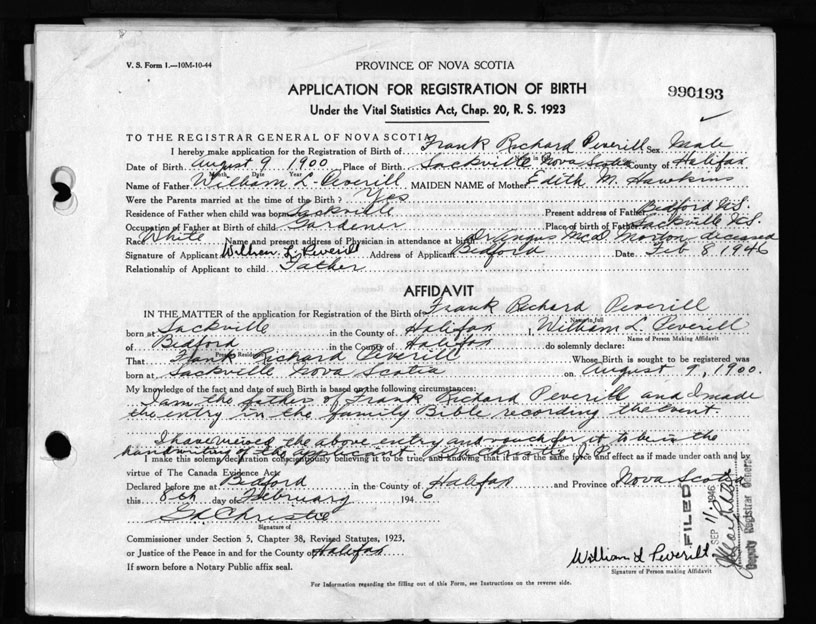 V. S. Form 1.—10M-10-44
PROVINCE OF NOVA SCOTIA
APPLICATION FOR REGISTRATION OF BIRTH
990193
Under the Vital Statistics Act, Chap. 20, R. S. 1923
TO THE REGISTRAR GENERAL OF NOVA SCOTIA
I hereby make application for the Registration of Birth of Frank Richard Peverill Sex Male
Date of Birth August 9 1900 Place of Birth Sackville in Nova Scotia County of Halifax
Month Date Year
Name of Father William L. Peverill MAIDEN NAME of Mother Edith M. Hawkins
Were the Parents married at time of the Birth? Yes
Residence of Father when child was born Sackville Present address of Father Bedford N.S.
Occupation of Father at Birth of child Gardener Place of birth of Father Sackville N.S.
Race White Name and present address of Physician in attendance at birth Dr Angus McD. Morton deceased
Signature of Applicant William L. Peverill Address of Applicant Bedford Date Feb 8 1946
Relationship of Applicant to child Father
AFFIDAVIT
IN THE MATTER of the application for Registration of the Birth of Frank Richard Peverill
Name in full
born at Sackville in the County of Halifax I, William L. Peverill
Name of Person Making Affidavit
of Bedford in the County of Halifax do solemnly declare:
That Frank Richard Peverill Whose Birth is sought to be registered was
born at Sackville Nova Scotia on August 9, 1900.
My knowledge of the fact and date of such Birth is based on the following circumstances:
I am the father of Frank Richard Peverill and I made
the entry in the family Bible recording the event.
I have viewed the above entry and vouch for it to be in the
handwriting of the applicant Christie J.P.
I make this solemn declaration conscientiously believing it to be true, and knowing that it is of the same force and effect as if made under oath and by
virtue of The Canada Evidence Act.
Declared before me at Bedford in the County of Halifax and Province of Nova Scotia
this 8th day of February 1946
Christie
Signature of
Commissioner under Section 5, Chapter 38, Revised Statutes, 1923,
or Justice of the Peace in and for the County of Halifax
If sworn before a Notary Public affix seal.
William L Peverill
Signature of Person making Affidavit
FILED
SEP 11 1946
Deputy Registrar General
For Information regarding the filling out of this Form, see Instructions on the reverse side.